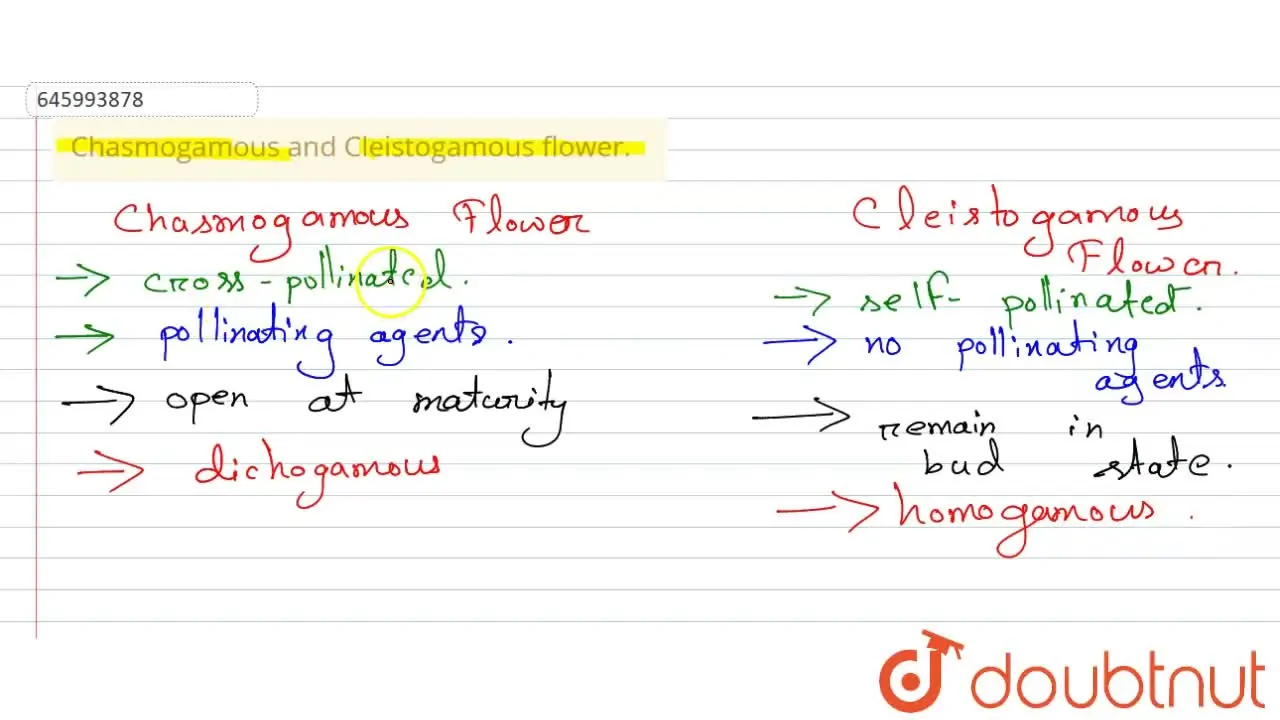 645993878
Chasmogamous and Cleistogamous flower.
Chasmogamous Flower
→ cross-pollinated.
→ pollinating agents.
→ open at maturity
→ dichogamous
Cleistogamous
Flower.
→ self- pollinated.
→ no pollinating
agents
→ remain in
bud state.
→ homogamous.
doubtnut